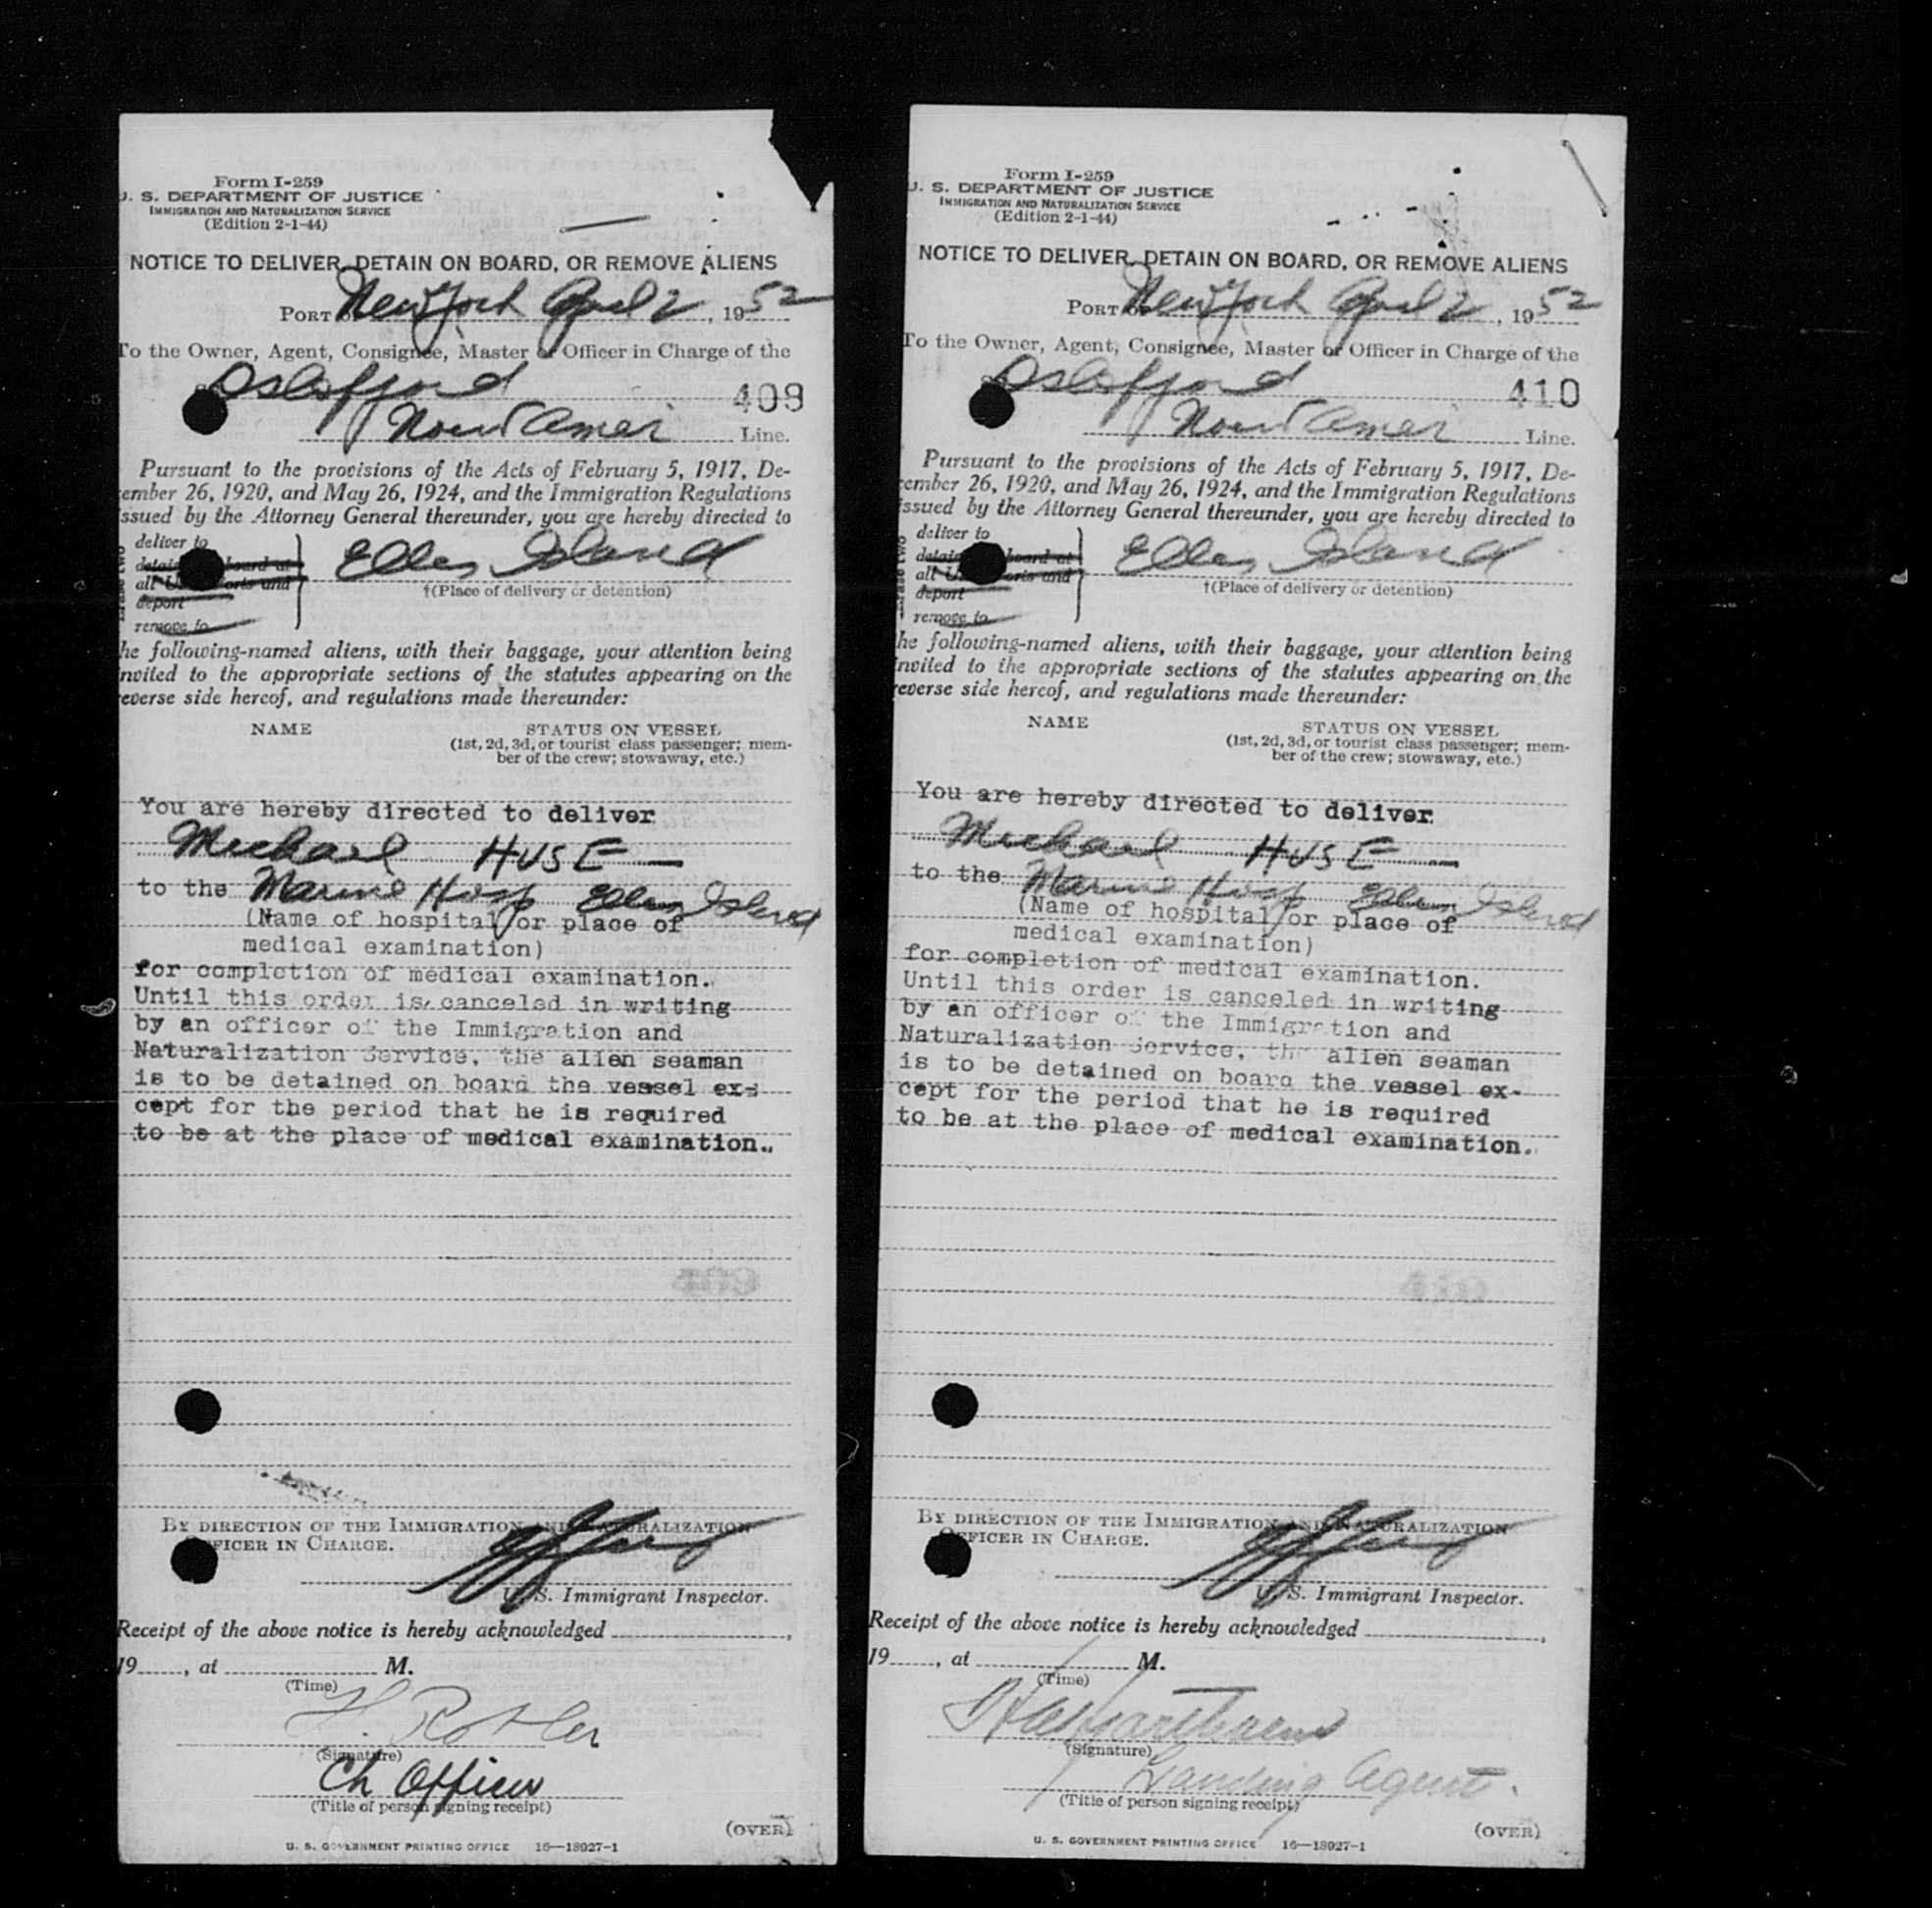 Form I-259
U. S. DEPARTMENT OF JUSTICE
IMMIGRATION AND NATURALIZATION SERVICE
(Edition 2-1-44)
NOTICE TO DELIVER, DETAIN ON BOARD, OR REMOVE ALIENS
PORT of New York April 2, 1952
To the Owner, Agent, Consignee, Master or Officer in Charge of the
Oslofjord 409
Norw Amer Line.
Pursuant to the provisions of the Acts of February 5, 1917, De-
cember 26, 1920, and May 26, 1924, and the Immigration Regulations
issued by the Attorney General thereunder, you are hereby directed to
deliver to
detain board at Ellis Island
all U. orts and
†(Place of delivery or detention)
deport
remove to
he following-named aliens, with their baggage, your attention being
nvited to the appropriate sections of the statutes appearing on the
reverse side hereof, and regulations made thereunder:
NAME STATUS ON VESSEL
(1st, 2d, 3d, or tourist class passenger; mem-
ber of the crew; stowaway, etc.)
You are hereby directed to deliver
Michael HUSE
to the Marine Hosp Ellis Island
(Name of hospital or place of
medical examination)
for completion of medical examination.
Until this order is canceled in writing
by an officer of the Immigration and
Naturalization Service, the alien seaman
is to be detained on board the vessel ex-
cept for the period that he is required
to be at the place of medical examination.
BY DIRECTION OF THE IMMIGRATION AND NATURALIZATION
OFFICER IN CHARGE.
U. S. Immigrant Inspector.
Receipt of the above notice is hereby acknowledged
19 , at M.
(Time)
H.
(Signature)
Ch Officer
(Title of person signing receipt)
(OVER)
U. S. GOVERNMENT PRINTING OFFICE 16—18027-1
Form I-259
U. S. DEPARTMENT OF JUSTICE
IMMIGRATION AND NATURALIZATION SERVICE
(Edition 2-1-44)
NOTICE TO DELIVER, DETAIN ON BOARD, OR REMOVE ALIENS
PORT of New York April 2, 1952
To the Owner, Agent, Consignee, Master or Officer in Charge of the
Oslofjord 410
Norw Amer Line.
Pursuant to the provisions of the Acts of February 5, 1917, De-
cember 26, 1920, and May 26, 1924, and the Immigration Regulations
issued by the Attorney General thereunder, you are hereby directed to
deliver to
detain board at Ellis Island
all U. orts and
†(Place of delivery or detention)
deport
remove to
he following-named aliens, with their baggage, your attention being
nvited to the appropriate sections of the statutes appearing on the
reverse side hereof, and regulations made thereunder:
NAME STATUS ON VESSEL
(1st, 2d, 3d, or tourist class passenger; mem-
ber of the crew; stowaway, etc.)
You are hereby directed to deliver
Michael HUSE
to the Marine Hosp Ellis Island
(Name of hospital or place of
medical examination)
for completion of medical examination.
Until this order is canceled in writing
by an officer of the Immigration and
Naturalization Service, the alien seaman
is to be detained on board the vessel ex-
cept for the period that he is required
to be at the place of medical examination.
BY DIRECTION OF THE IMMIGRATION AND NATURALIZATION
OFFICER IN CHARGE.
U. S. Immigrant Inspector.
Receipt of the above notice is hereby acknowledged
19 , at M.
(Time)
(Signature)
Landing Agent.
(Title of person signing receipt)
(OVER)
U. S. GOVERNMENT PRINTING OFFICE 16—18027-1